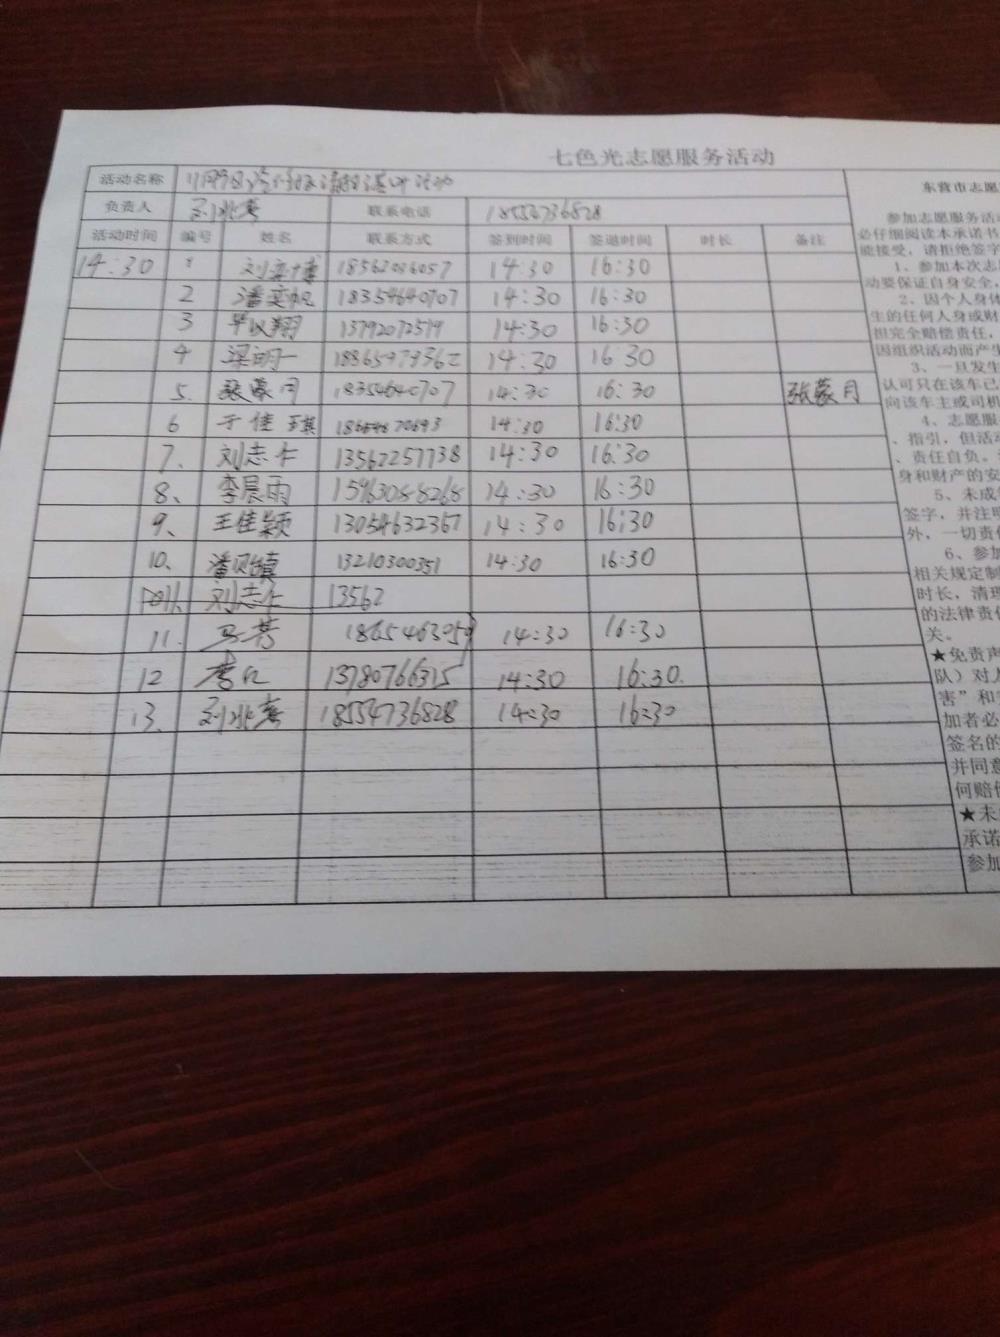 七色光志愿服务活动
活动名称 11月9日
负责人 联系电话 18554736828
活动时间 编号 姓名 联系方式 签到时间 签退时间 时长 备注
14:30 1 刘奕博 18562086057 14:30 16:30
2 潘奕帆 18354640707 14:30 16:30
3 毕以翔 13792072519 14:30 16:30
4 梁明一 18865979362 14:30 16:30
5. 张蒙月 18354640707 14:30 16:30 张蒙月
6 于佳琪 14:30 16:30
7、 刘志仁 13562257738 14:30 16:30
8、 李晨雨 15963058268 14:30 16:30
9、 王佳颖 13054632367 14:30 16:30
10、 潘 13210300351 14:30 16:30
刘志仁 13562
11. 马芳 1865463059 14:30 16:30
12 李红 13780766315 14:30 16:30.
13、 18554736828 14:30 16:30
东营市志愿
参加志愿服务活
必仔细阅读本承诺书
能接受，请拒绝签字
1、参加本次志
动要保证自身安全，
2、因个人身体
生的任何人身或财
担完全赔偿责任，
因组织活动而产生
3、一旦发生
认可只在该车已
向该车主或司机
4、志愿服
、指引，但活动
、责任自负。
身和财产的安
5、未成
签字，并注明
外，一切责任
6、参加
相关规定制
时长，清理
的法律责任
关。
★免责声
队）对人
害”和
加者必
签名的
并同意
何赔偿
★未
承诺
参加